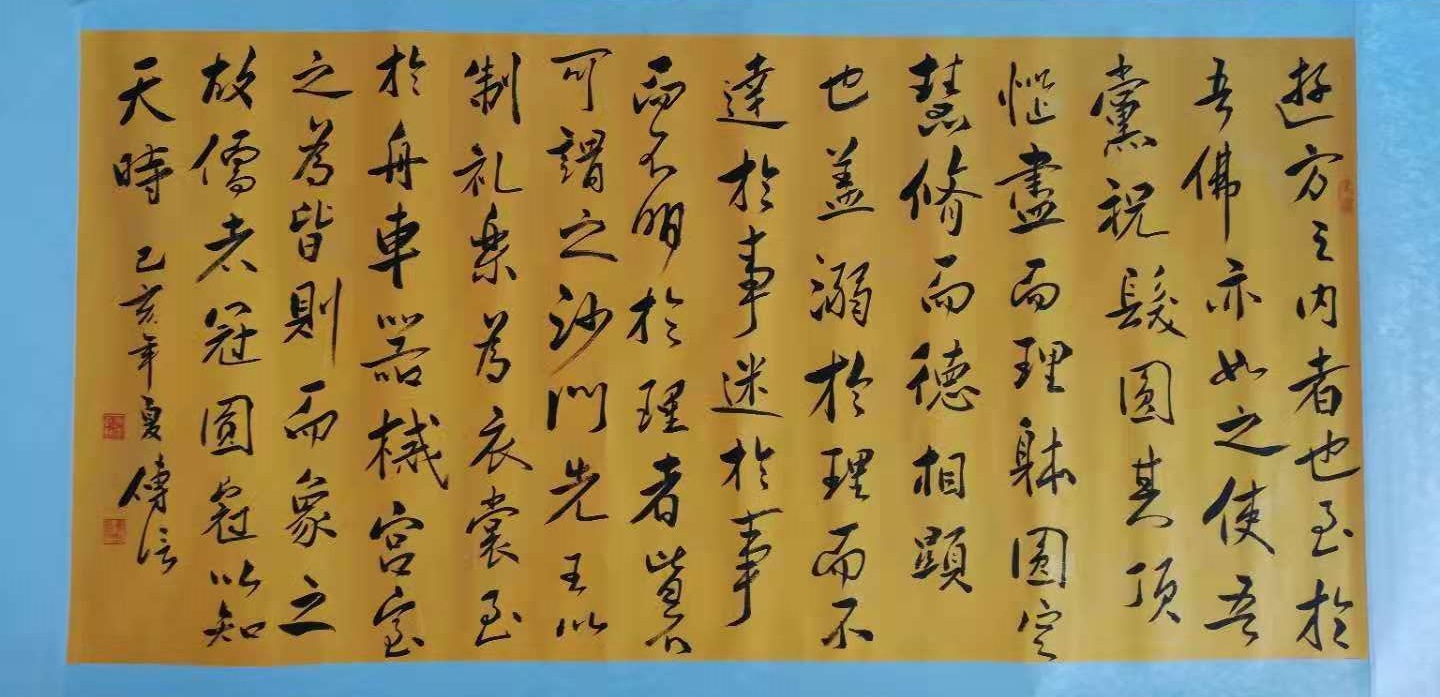 遊方之内者也至於
吾佛亦如之使吾
黨祝髮圓其顶
惱盡而理躰圓定
慧脩而德相顯
也盖溺於理而不
達於事迷於事
而不明於理者皆不
可謂之沙门先王以
制礼乐為衣裳至
於舟車器械宫室
之為皆則而象之
故儒者冠圓冠以知
天時
己亥年夏傳信